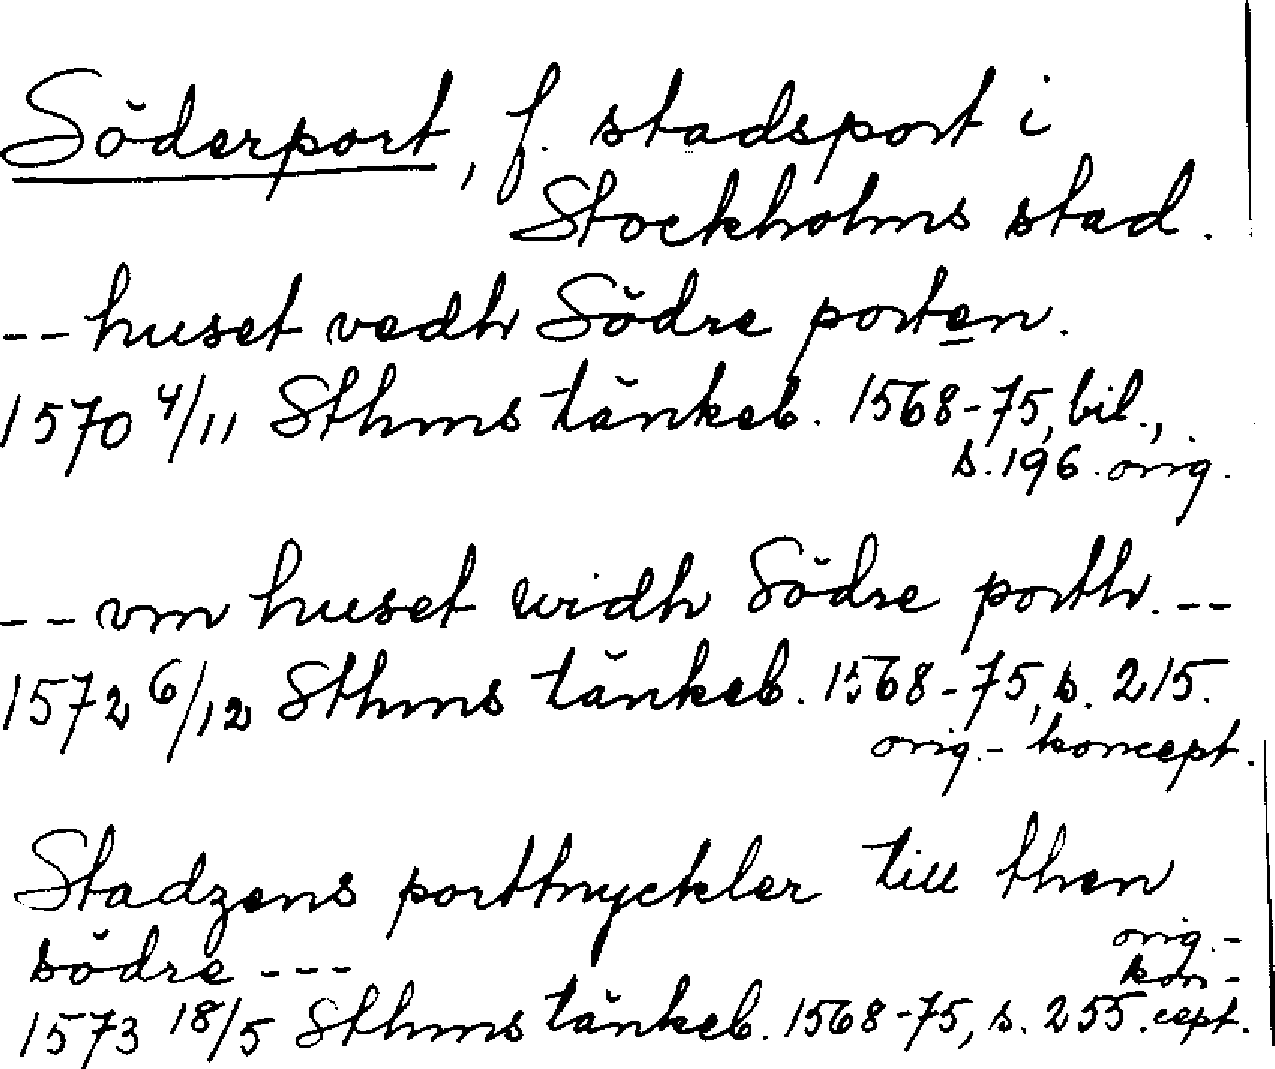 Söderport, f. stadsport i
Stockholms stad.
-- huset vedh Södre porten.
1570 4/11 Sthms tänkeb. 1568-75, bil.,
s. 196. orig.
-- vm huset widh Södre porth. --
1572 6/12 Sthms tänkeb. 1568-75, s. 215.
orig.- koncept.
Stadzens porttnyckler till then
södre ---
1573 18/5 Sthms tänkeb. 1568-75, s. 255. orig.-kon-cept.